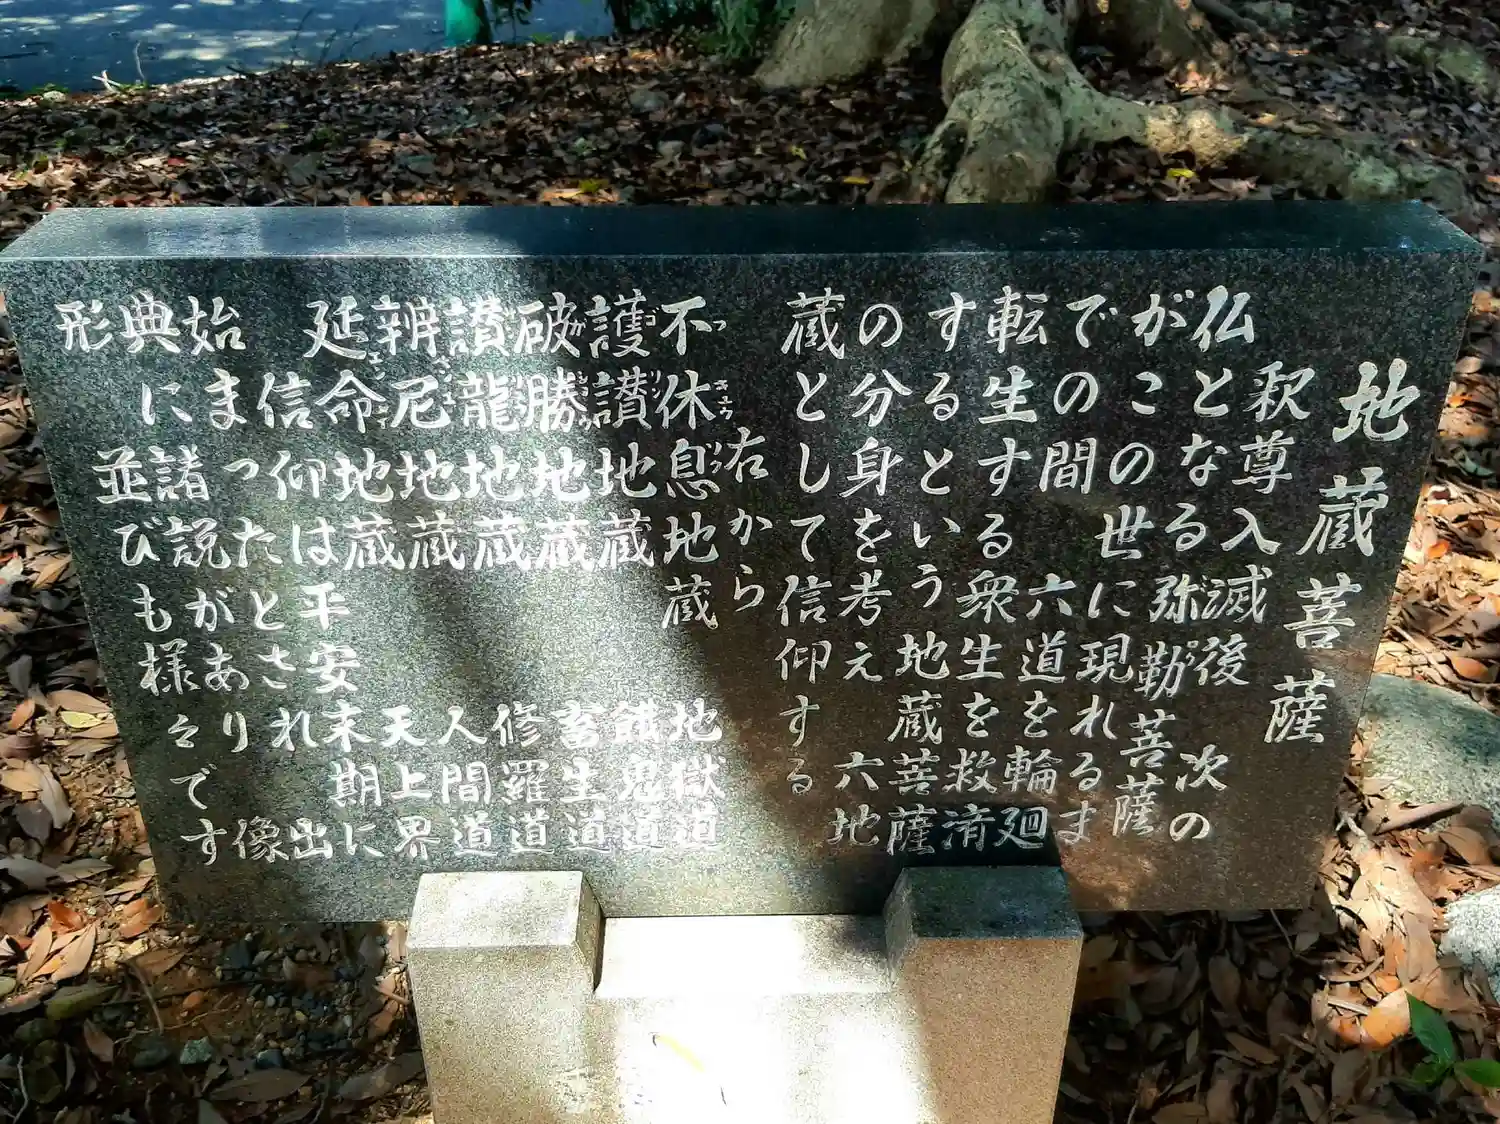 地蔵菩薩
釈尊入滅後 次の
仏となる弥勒菩薩
がこの世に現れるま
での間 六道を輪廻
転生する衆生を救済
するという地蔵菩薩
の分身を考え 六地
蔵として信仰する
右から
不休息地蔵 地獄道
護讃地蔵 餓鬼道
破勝地蔵 畜生道
讃龍地蔵 修羅道
辨尼地蔵 人間道
延命地蔵 天上界
信仰は平安末期に
始まったとされ 出
典に諸説があり 像
形 並びも様々です